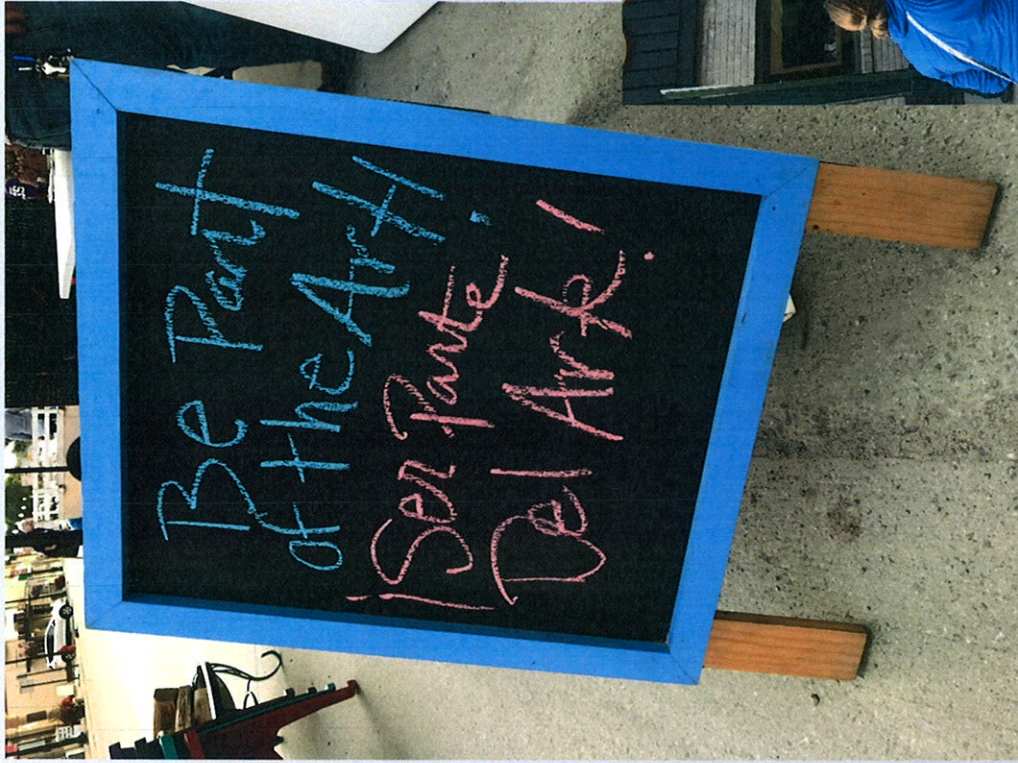 Be Part
of the Art!
¡Ser Parte
Del Arte!